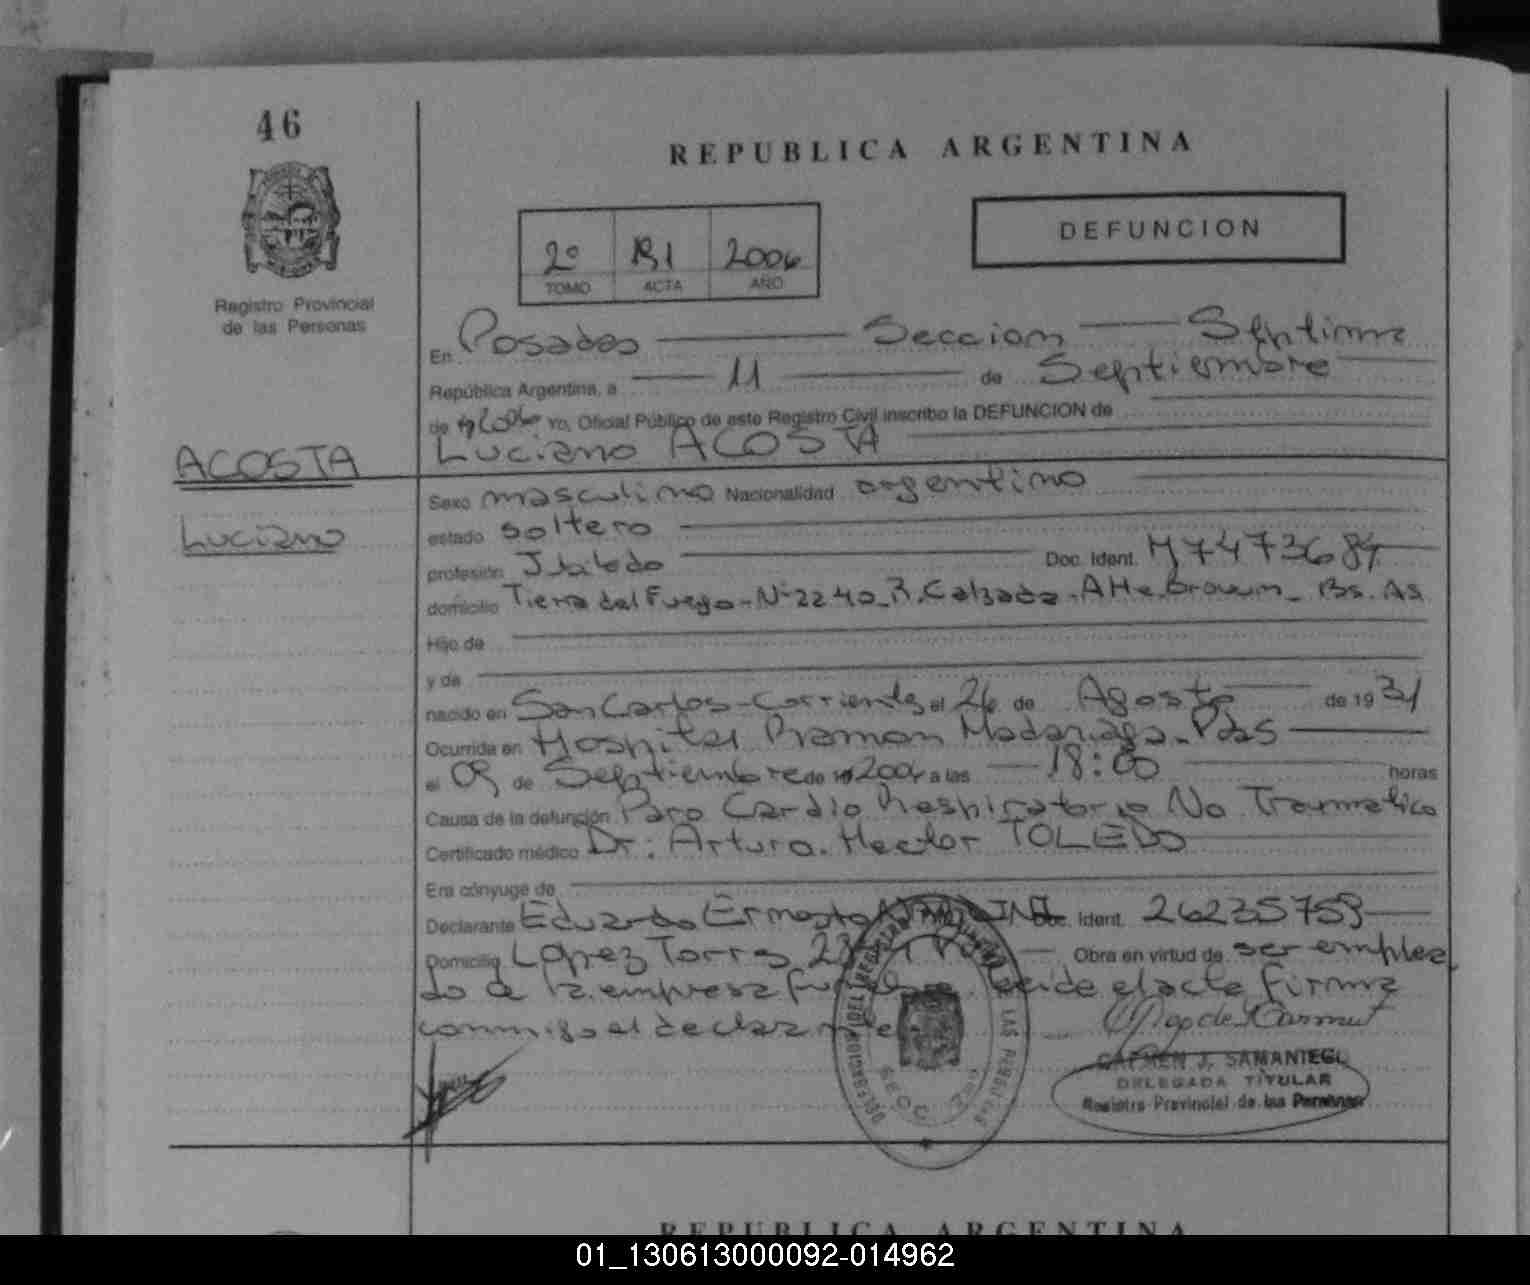 46
REPUBLICA ARGENTINA
DEFUNCION
2º 2006
TOMO ACTA AÑO
Registro Provincial
de las Personas
En Posadas Seccion Septima
República Argentina, a 11 de Septiembre
de 2006 Yo, Oficial Público de este Registro Civil inscribo la DEFUNCION de
ACOSTA Luciano ACOSTA
Sexo masculino Nacionalidad argentino
Luciano estado soltero
profesión Jubilado Doc. Ident. M 7473684
domicilio Tierra del Fuego - Nº 2240 - R. Calzada - Alte. Brown - Bs. As
Hijo de
y de
nacido en San Carlos - Corrientes el 26 de Agosto de 1931
Ocurrida en Hospital Ramon Madariaga - Pdas
el 09 de Septiembre de 2006 a las 18:00 horas
Causa de la defunción Paro Cardio Respiratorio No Traumatico
Certificado médico Dr: Arturo Hector TOLEDO
Era cónyuge de
Declarante Eduardo Ernesto Doc. Ident. 26235759
Domicilio Lopez Torres Obra en virtud de ser emplea
do de la empresa leide el acta firma
conmigo el declarante
CARMEN J. SAMANIEGO
DELEGADA TITULAR
Registro Provincial de las Personas
REPUBLICA ARGENTINA
01_130613000092-014962